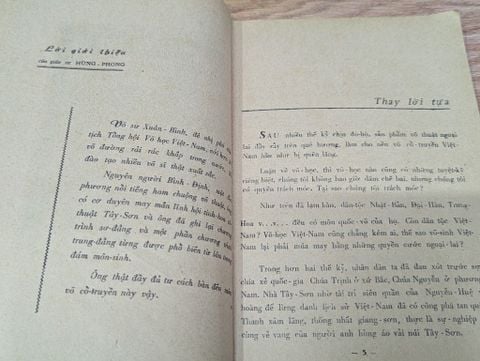 Lời giới thiệu
của giáo sư HÙNG-PHONG
Võ sư Xuân-Bình, đệ nhị phó
tịch Tổng hội Võ học Việt-Nam, với hơn
võ đường rải rác khắp trong nước
đào tạo nhiều võ sĩ thật xuất sắc.
Nguyên người Bình-Định, một địa
phương nổi tiếng ham chuộng võ thuật, ông
có cơ duyên may mắn lĩnh hội tinh-hoa
thuật Tây-Sơn và ông đã ghi lại chương
trình sơ-đẳng và một phần chương trình
trung-đẳng từng được phổ biến từ lâu trong
đám môn-sinh.
Ông thật đầy đủ tư cách bàn đến
võ cổ-truyền này vậy.
Thay lời tựa
SAU nhiều thế kỷ chịu đô-hộ, sản phẩm võ thuật ngoại
lai đầy rẫy trên quê hương, làm cho nền võ cổ-truyền Việt-
Nam hầu như bị quên lãng.
Luận về võ-học, thì võ-học nào cũng có những tuyệt-kỹ
riêng biệt, chúng tôi không bao giờ dám chê bai, nhưng chúng tôi
có quyền trách móc. Tại sao chúng tôi trách móc?
Như trên đã làm lòng, dân-tộc Nhật-Bản, Đại-Hàn, Trung-
Hoa v.v... đều có môn quốc-võ của họ. Còn dân-tộc Việt-
Nam? Võ-học Việt-Nam cũng chẳng kém ai, thế sao võ-sinh Việt-
Nam lại phải múa may bằng những quyền cước ngoại-lai?
Trong hơn hai thế kỷ, nhân dân ta đã đau xót trước sự
chia xẻ quốc-gia Chúa Trịnh ở xứ Bắc, Chúa Nguyễn ở phương
Nam. Nhà Tây-Sơn như tài trí siêu quần của Nguyễn-Huệ
hoàng-đế lừng danh lịch sử Việt-Nam đã có công phá tan quân
Thanh xâm lăng, thống nhất giang-sơn, thực là sự-nghiệp
cùng vẻ vang của người anh hùng áo vải núi Tây-Sơn.
— 5 —